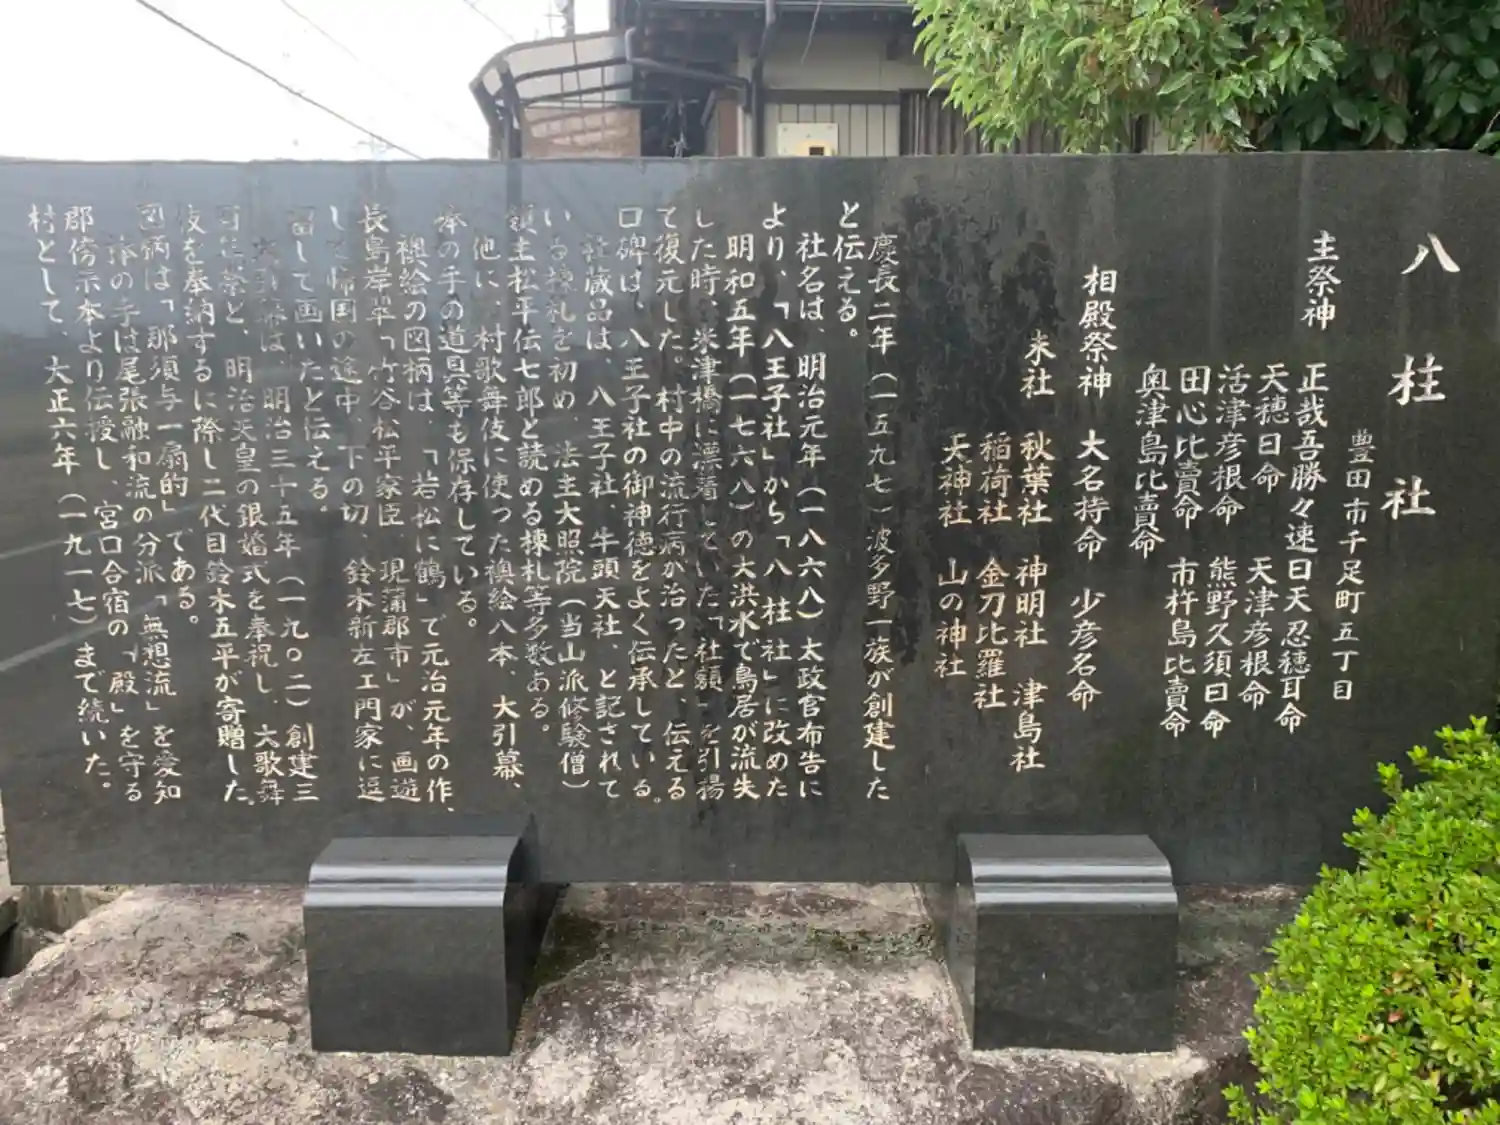 八柱社
豊田市千足町五丁目
主祭神 正哉吾勝々速日天忍穂耳命
天穂日命 天津彦根命
活津彦根命 熊野久須日命
田心比賣命 市杵島比賣命
奥津島比賣命
相殿祭神 大名持命 少彦名命
末社 秋葉社 神明社 津島社
稲荷社 金刀比羅社
天神社 山の神社
慶長二年(一五九七)波多野一族が創建した
と伝える。
社名は、明治元年(一八六八)太政官布告に
より、「八王子社」から「八柱社」に改めた
明和五年(一七六八)の大洪水で鳥居が流失
した時、米津橋に漂着していた「社額」を引揚
て復元した。村中の流行病が治ったと、伝える
口碑は、八王子社の御神徳をよく伝承している。
社蔵品は、八王子社、牛頭天社、と記されて
いる棟札を初め、法主大照院(当山派修験僧)
領主松平伝七郎と読める棟札等多数ある。
他に、村歌舞伎に使った襖絵八本、大引幕、
棒の手の道具等も保存している。
襖絵の図柄は、「若松に鶴」で元治元年の作、
長島岸平「竹谷松平家臣、現蒲郡市」が、画遊
して帰国の途中、下の切、鈴木新左エ門家に逗
留して画いたと伝える。
大引幕は、明治三十五年(一九〇二)創建三
百年祭と、明治天皇の銀婚式を奉祝し、大歌舞
伎を奉納するに際し二代目鈴木五平が寄贈した。
図柄は「那須与一扇的」である。
棒の手は尾張融和流の分派「無想流」を愛知
郡傍示本より伝授し、宮口合宿の「殿」を守る
村として、大正六年(一九一七)まで続いた。